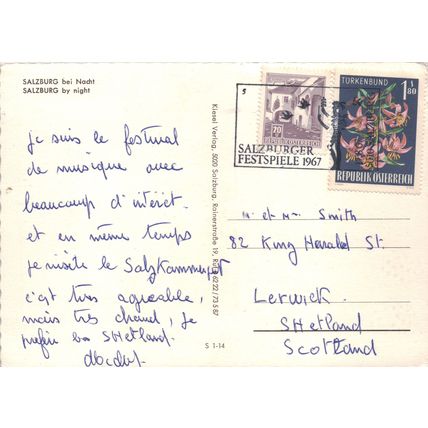 SALZBURG bei Nacht
SALZBURG by night
Je suis le festival
de musique avec
beaucoup d'intéret.
et en même temps
je visite le Salzkammergut
c'est très agréable,
mais très chaud, je
préfère SHetland.
S 1-14
Kiesel Verlag, 5020 Salzburg, Rainerstraße 19, Ruf 6222/73587
5
SALZBURGER
FESTSPIELE 1967
20
REPUBLIK ÖSTERREICH
TÜRKENBUND
1 S 80
REPUBLIK ÖSTERREICH
M. et Mme Smith
82 King Harald St.
Lerwick.
SHetland
Scotland